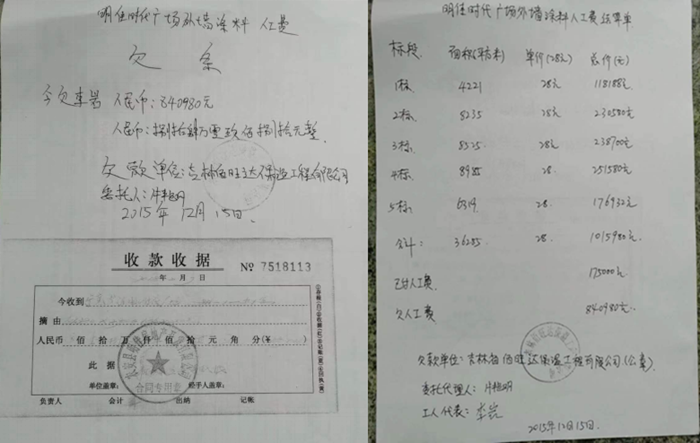 明佳时代广场外墙涂料人工费
欠条
今欠李岩人民币:840980元
人民币:捌拾肆万零玖佰捌拾元整
欠款单位:吉林佰旺达保温工程有限公司
委托人:牛艳明
2015年12月15日.
收款收据 № 7518113
年 月 日
今收到
摘由
人民币 佰 拾 万 仟 佰 拾 元 角 分(¥ )
此据
合同专用章
单位盖章: 经手人盖章:
负责人 会计 出纳 记帐
明佳时代广场外墙涂料人工费结算单
标段 面积(平方米) 单价(28元) 总价(元)
1栋 4221 28元 118188元
2栋 8235 28元 230580元
3栋 8525 28元 238700元
4栋 8985 28 251580元
5栋 6319 28 176932元
合计: 36285 28 1015980元
已付人工费 175000元
欠人工费 840980元
欠款单位:吉林省佰旺达保温工程有限公司(公章)
委托代理人:牛艳明
工人代表:李岩
2015年12月15日.